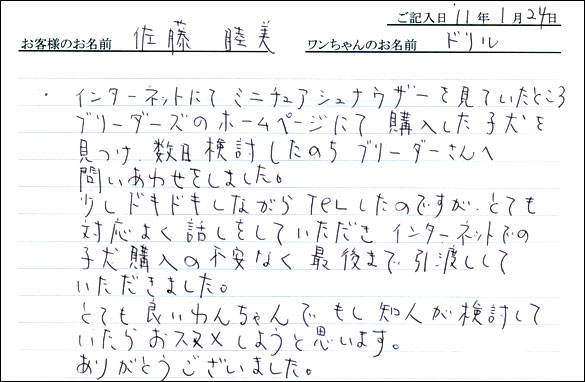 ご記入日 '11年 1月24日
お客様のお名前 佐藤 睦美 ワンちゃんのお名前 ドリル
・インターネットにて ミニチュアシュナウザーを見ていたところ
ブリーダーズのホームページにて 購入した子犬を
見つけ 数日検討したのち ブリーダーさんへ
問いあわせをしました。
少しドキドキしながら TELしたのですが、とても
対応よく 話しをしていただき インターネットでの
子犬購入の不安なく 最後まで 引渡しして
いただきました。
とても良いわんちゃんで もし知人が検討して
いたら おススメしようと思います。
ありがとうございました。